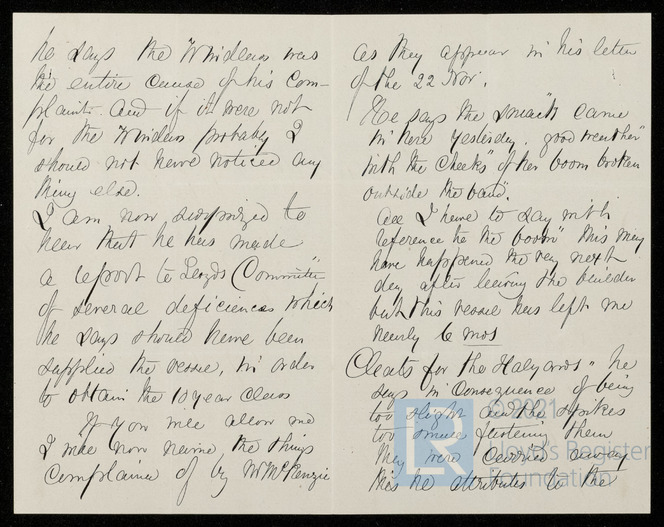 he says the "Windlass was
the entire cause of his Com-
plaint. And if it were not
for the Windlass probably I
should not have noticed any
thing else.
I am now surprized to
hear that he has made
a report to Lloyds Committee
of several deficiences which
he says should have been
supplied the vessel, in order
to obtain the 10 year Class
If you will allow me
I will now name the things
Complained of by Mr McKenzie
as they appear in his letter
of the 22 Nov.
He says the Smack came
in here yesterday. good weather"
with the Cheeks" of her boom broken
outside the band".
All I have to say with
reference to the boom" this may
have happened the very next
day after leaving the builder
but this vessel has left me
nearly 6 mos
Cleats for the Halyards" he
says in Consequence of being
too slight and the spikes
too small fastening them
they were carried away
this he attributes to the
© 2021
Lloyd's Register
Foundation
LR